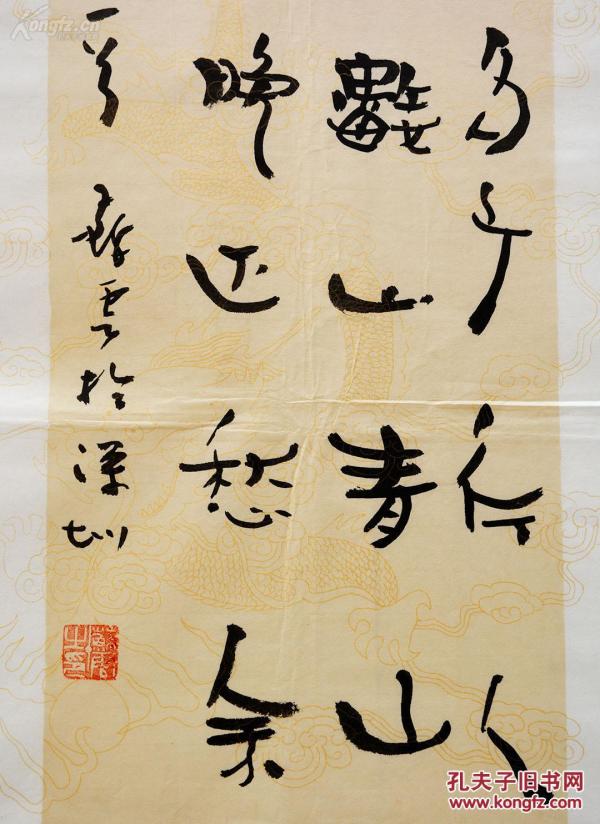 多少行人
數山青山
晚正愁余
於深圳
孔夫子旧书网
www.kongfz.com
Kongfz.com